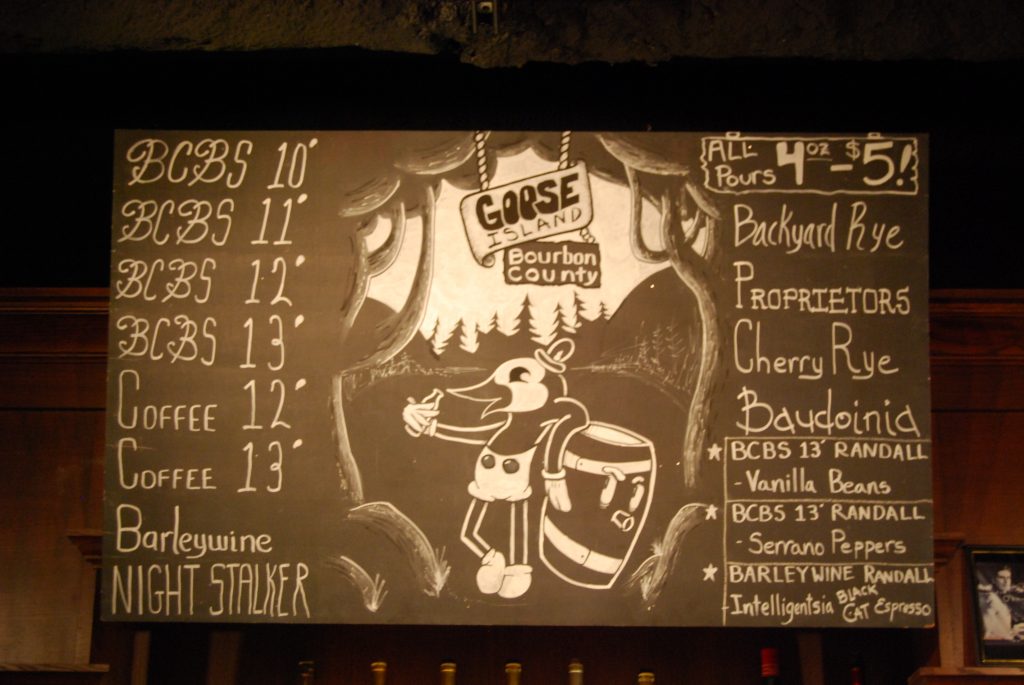 BCBS 10'
BCBS 11'
BCBS 12'
BCBS 13'
COFFEE 12'
COFFEE 13'
Barleywine
NIGHT STALKER
GOOSE
ISLAND
Bourbon
County
ALL
Pours
4oz - $5!
Backyard Rye
PROPRIETORS
Cherry Rye
Baudoinia
BCBS 13' RANDALL
- Vanilla Beans
BCBS 13' RANDALL
- Serrano Peppers
BARLEYWINE RANDALL
- Intelligentsia BLACK CAT Espresso